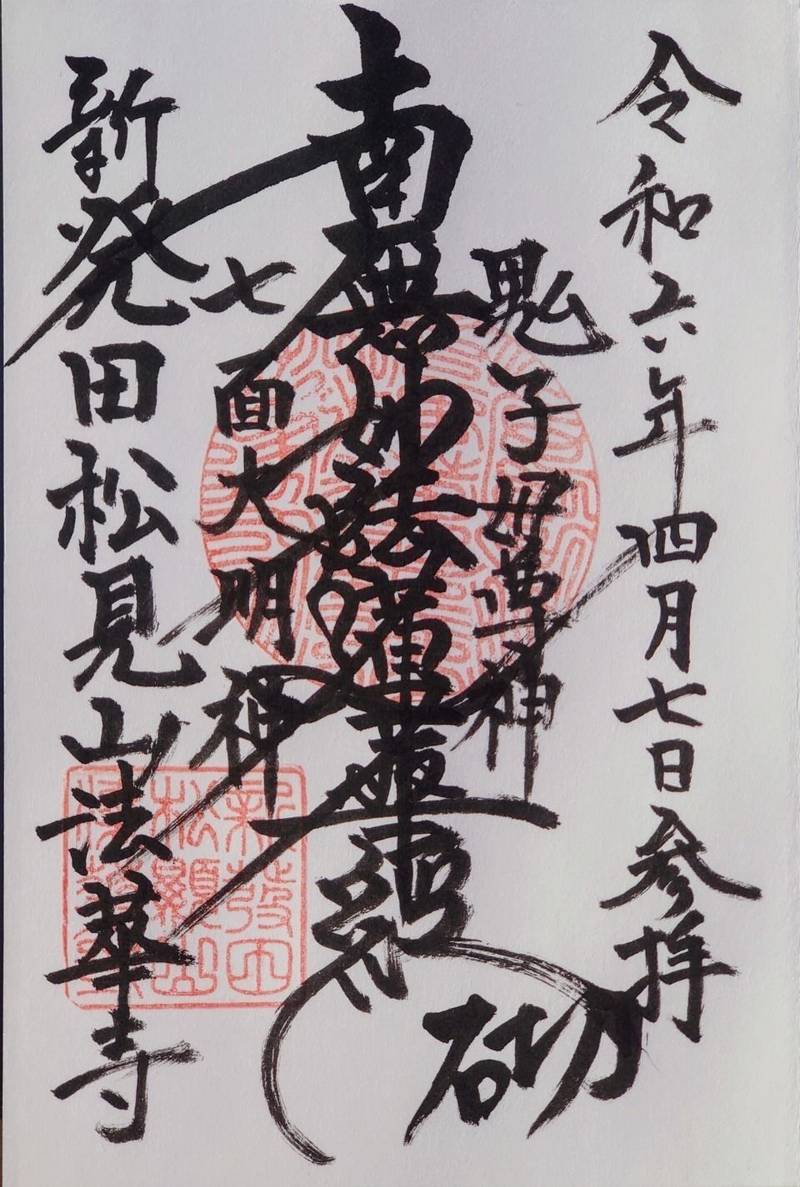 令和六年四月七日参拝
鬼子母尊神
南無妙法蓮華経
砌
七面大明神
新発田松見山法華寺